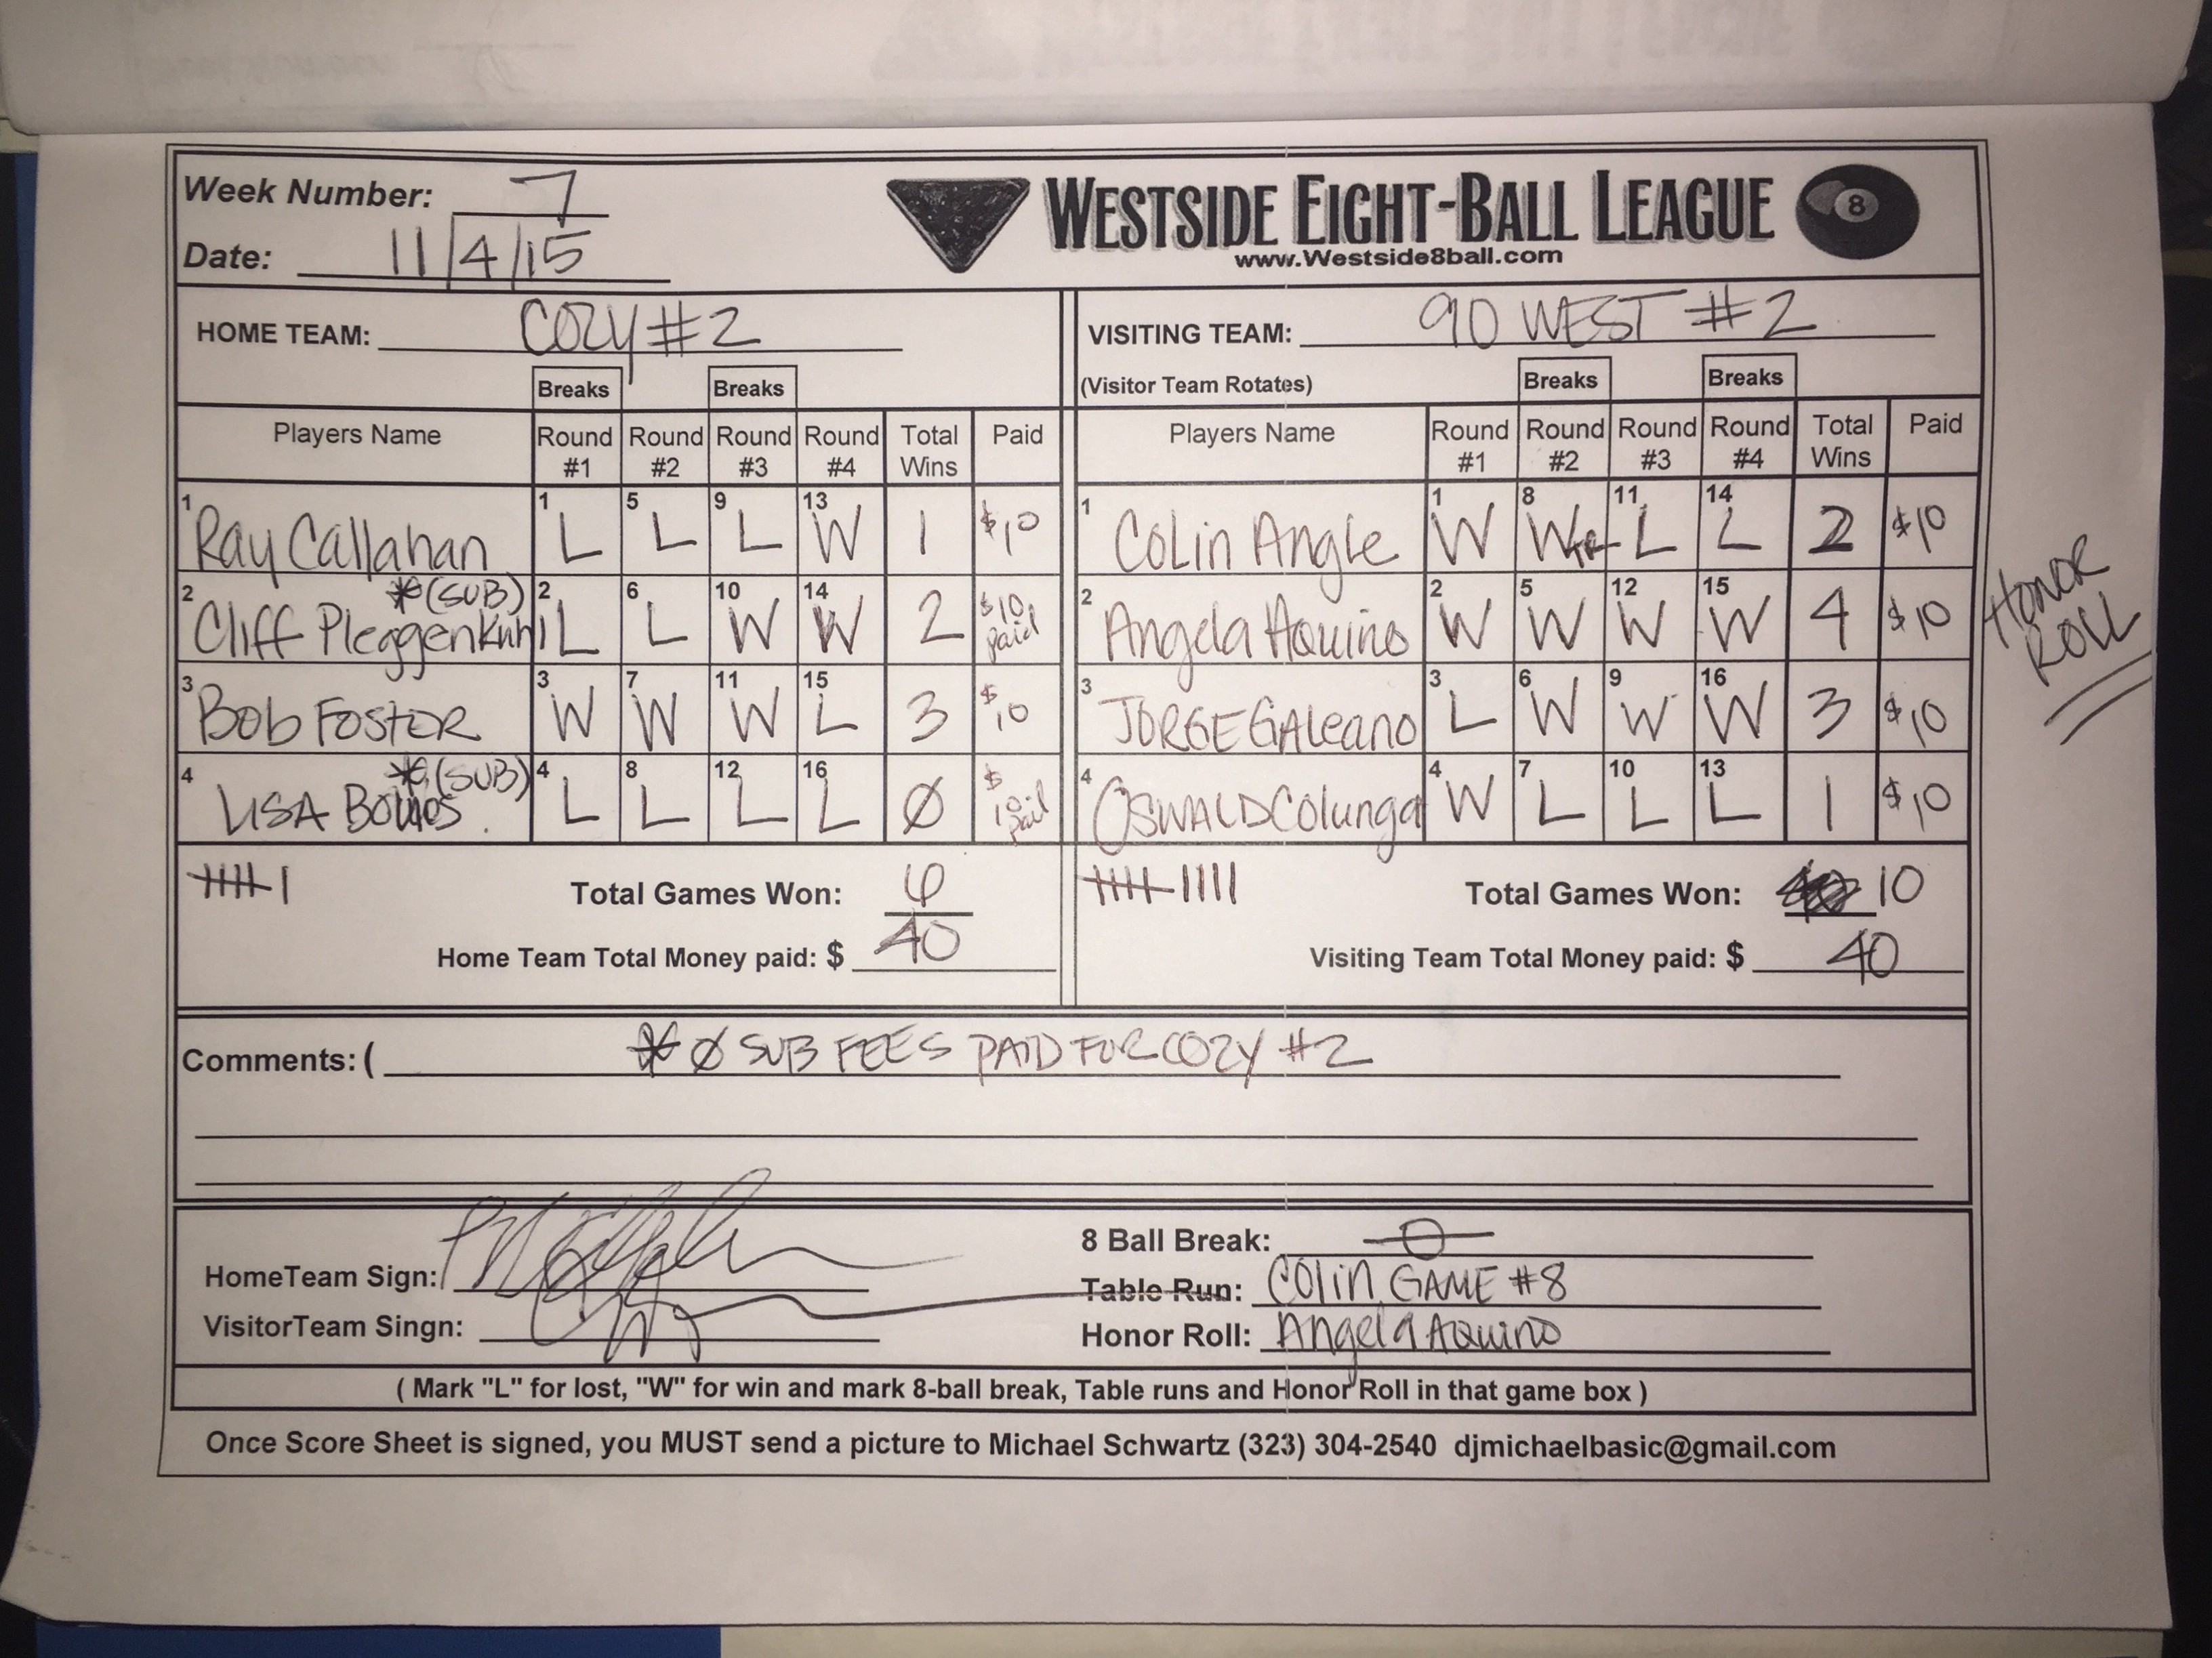 Week Number: 7
Date: 11/4/15
WESTSIDE EIGHT-BALL LEAGUE 8
www.Westside8ball.com
HOME TEAM: COZY #2
VISITING TEAM: 90 WEST #2
Breaks Breaks
(Visitor Team Rotates) Breaks Breaks
Players Name Round #1 Round #2 Round #3 Round #4 Total Wins Paid
1 Ray Callahan 1 L 5 L 9 L 13 W 1 $10
2 Cliff Pleggenkuhl *(SUB) 2 L 6 L 10 W 14 W 2 $10 paid
3 Bob FOSTER 3 W 7 W 11 W 15 L 3 $10
4 LISA *(SUB) 4 L 8 L 12 L 16 L Ø $10 paid
Total Games Won: 6
Home Team Total Money paid: $ 40
Players Name Round #1 Round #2 Round #3 Round #4 Total Wins Paid
1 COLin Angle 1 W 8 W 11 L 14 L 2 $10
2 Angela Aquino 2 W 5 W 12 W 15 W 4 $10
HONOR ROLL
3 JORGE GALeano 3 L 6 W 9 W 16 W 3 $10
4 OSWALD Colunga 4 W 7 L 10 L 13 L 1 $10
Total Games Won: 10
Visiting Team Total Money paid: $ 40
Comments: ( * Ø SUB FEES PAID FOR COZY #2
HomeTeam Sign:
VisitorTeam Singn:
8 Ball Break: 0
Table Run: COlin GAME #8
Honor Roll: Angela Aquino
( Mark "L" for lost, "W" for win and mark 8-ball break, Table runs and Honor Roll in that game box )
Once Score Sheet is signed, you MUST send a picture to Michael Schwartz (323) 304-2540 djmichaelbasic@gmail.com